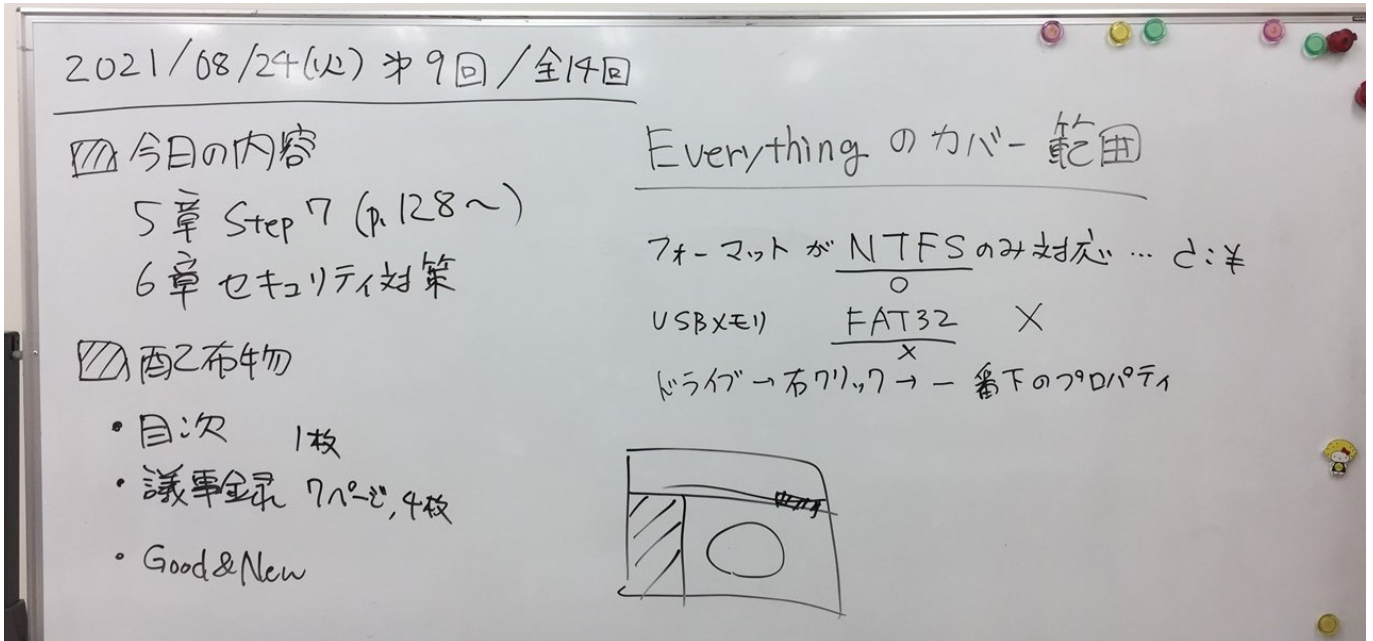 2021/08/24(火) 第9回/全14回
今日の内容
5章 Step 7 (p.128〜)
6章 セキュリティ対策
配布物
・目次 1枚
・議事録 7ページ,4枚
・Good&New
Everythingのカバー範囲
フォーマットがNTFSのみ対応…C:¥
○
USBメモリ FAT32 ×
×
ドライブ→右クリック→一番下のプロパティ